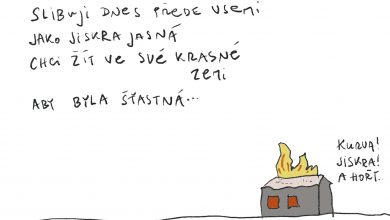 SLIBUJI DNES PŘEDE VŠEMI
JAKO JISKRA JASNÁ
CHCI ŽÍT VE SVÉ KRASNÉ
ZEMI
ABY BYLA ŠŤASTNÁ...
KURVA!
JISKRA!
A HOŘÍ.